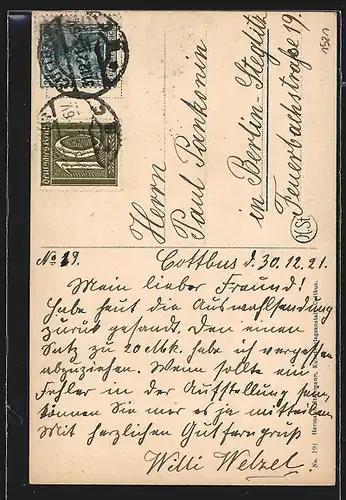 Herrn
Paul Pankonin
in Berlin-Steglitz
Feuerbachstraße 19.
1521
Deutsches Reich
10
No 19.
Cottbus d. 30.12.21.
Mein lieber Freund!
Habe heut die Auswahlsendung
zurück gesandt. Den einen
Satz zu 20 Mk. habe ich vergessen
abzuziehen. Wenn sollte ein
Fehler in der Aufstellung sein,
können Sie mir es ja mitteilen.
Mit herzlichen Gruß
Willi Welzel
No. 191 Kunstverlagsanstalt, Cottbus.